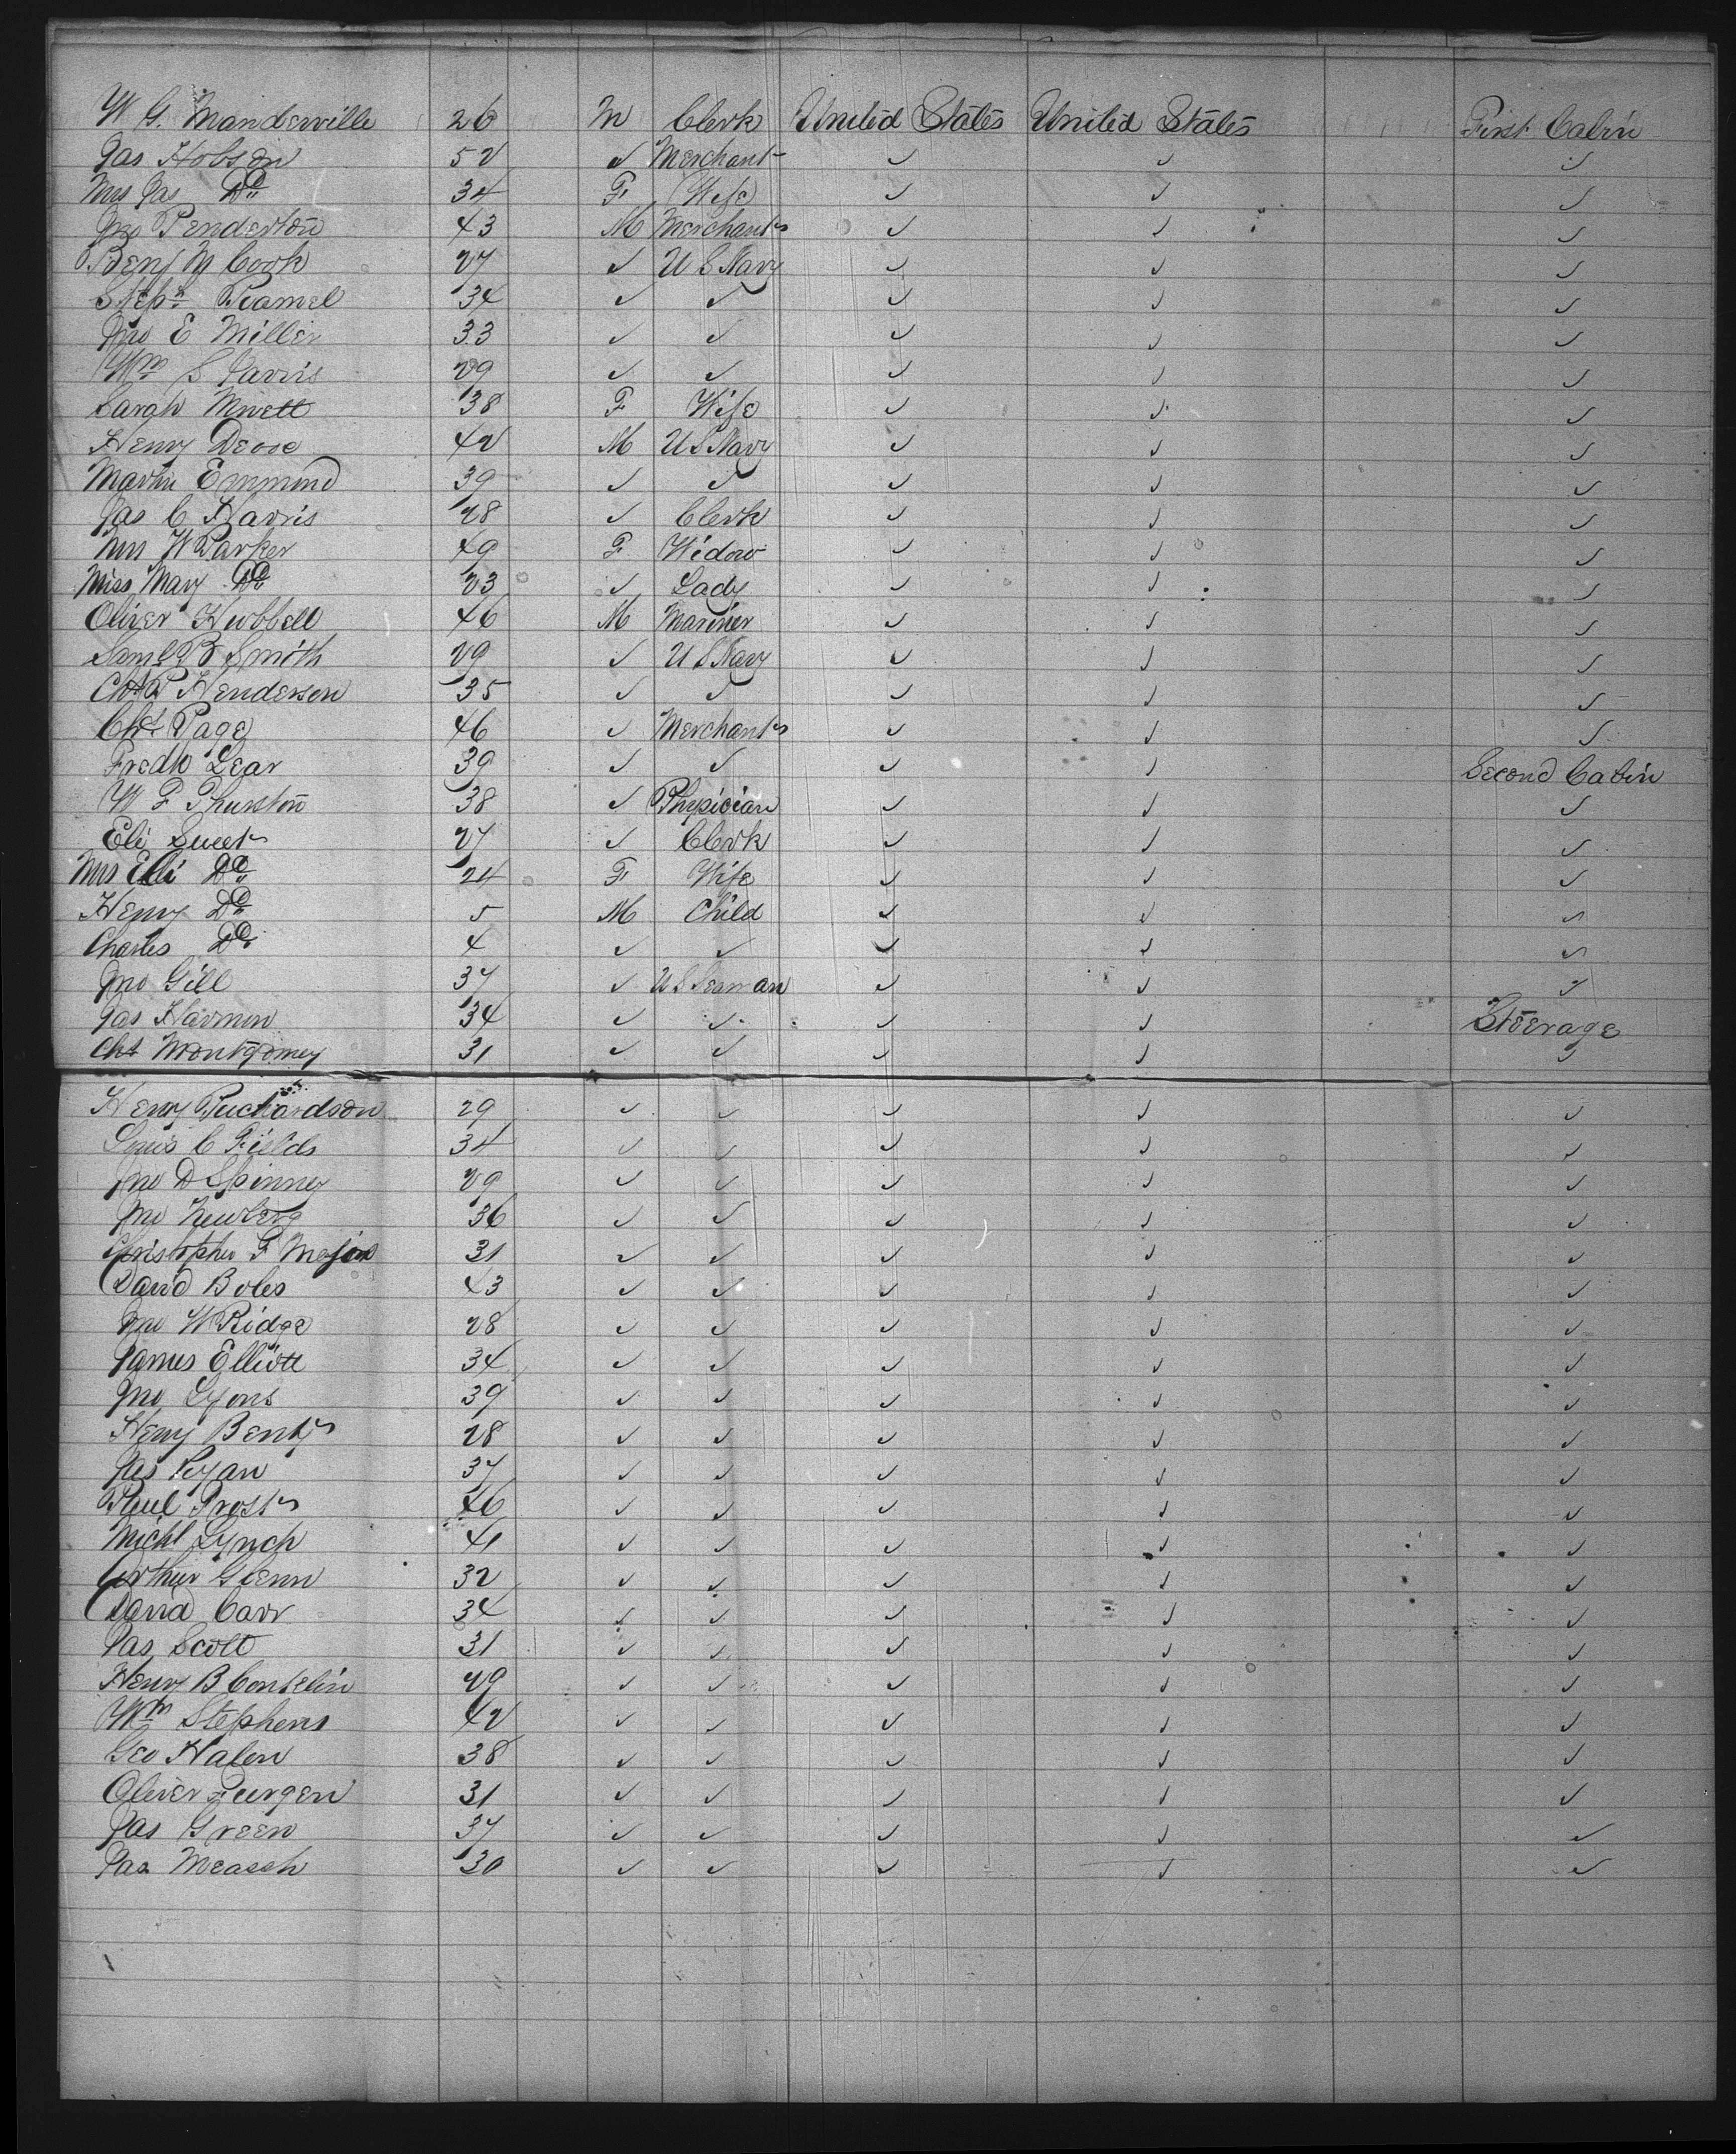 W G. Manderville 26 M Clerk United States United States First Cabin
Jas Hobson 52 ✓ Merchant ✓ ✓ ✓
Mrs Jas Do 34 F Wife ✓ ✓ ✓
Jno Penderton 43 M Merchant ✓ ✓ ✓
Benj M Cook 27 ✓ U S Navy ✓ ✓ ✓
Steph 34 ✓ ✓ ✓ ✓ ✓
Jno E Miller 33 ✓ ✓ ✓ ✓ ✓
Wm S 29 ✓ ✓ ✓ ✓ ✓
Sarah 38 F Wife ✓ ✓ ✓
Henry 42 M U S Navy ✓ ✓ ✓
Martin Emmond 39 ✓ ✓ ✓ ✓ ✓
Jas C Harris 28 ✓ Clerk ✓ ✓ ✓
Mrs W Parker 49 F Widow ✓ ✓ ✓
Miss Mary Do 23 ✓ Lady ✓ ✓ ✓
Oliver Hubbell 46 M Mariner ✓ ✓ ✓
Saml B Smith 29 ✓ U S Navy ✓ ✓ ✓
Henderson 35 ✓ ✓ ✓ ✓ ✓
Chs Page 46 ✓ Merchant ✓ ✓ ✓
Fredk Lear 39 ✓ ✓ ✓ ✓ Second Cabin
W F Thurston 38 ✓ Physician ✓ ✓ ✓
Eli Sweet 27 ✓ Clerk ✓ ✓ ✓
Mrs Elli Do 24 F Wife ✓ ✓ ✓
Henry Do 5 M Child ✓ ✓ ✓
Charles Do 4 ✓ ✓ ✓ ✓ ✓
Jno Gill 37 ✓ U S Seaman ✓ ✓ ✓
Jas Harmon 34 ✓ ✓ ✓ ✓ Steerage
Chs Montgomey 31 ✓ ✓ ✓ ✓ ✓
Henry Richardson 29 ✓ ✓ ✓ ✓ ✓
Louis C Fields 34 ✓ ✓ ✓ ✓ ✓
Jno D Spinney 29 ✓ ✓ ✓ ✓ ✓
Jno Newberg 36 ✓ ✓ ✓ ✓ ✓
Christopher F Major 31 ✓ ✓ ✓ ✓ ✓
David Boles 43 ✓ ✓ ✓ ✓ ✓
Jno W Ridge 28 ✓ ✓ ✓ ✓ ✓
James Elliott 34 ✓ ✓ ✓ ✓ ✓
Jno Lyons 39 ✓ ✓ ✓ ✓ ✓
Henry 28 ✓ ✓ ✓ ✓ ✓
Jas Ryan 37 ✓ ✓ ✓ ✓ ✓
Paul Prost 46 ✓ ✓ ✓ ✓ ✓
Michl Lynch 41 ✓ ✓ ✓ ✓ ✓
Arthur Glenn 32 ✓ ✓ ✓ ✓ ✓
David Carr 34 ✓ ✓ ✓ ✓ ✓
Jas Scott 31 ✓ ✓ ✓ ✓ ✓
Henry B 29 ✓ ✓ ✓ ✓ ✓
Wm Stephens 42 ✓ ✓ ✓ ✓ ✓
Geo Halen 38 ✓ ✓ ✓ ✓ ✓
Oliver Jurgen 31 ✓ ✓ ✓ ✓ ✓
Jas Green 37 ✓ ✓ ✓ ✓ ✓
Jas 30 ✓ ✓ ✓ ✓ ✓